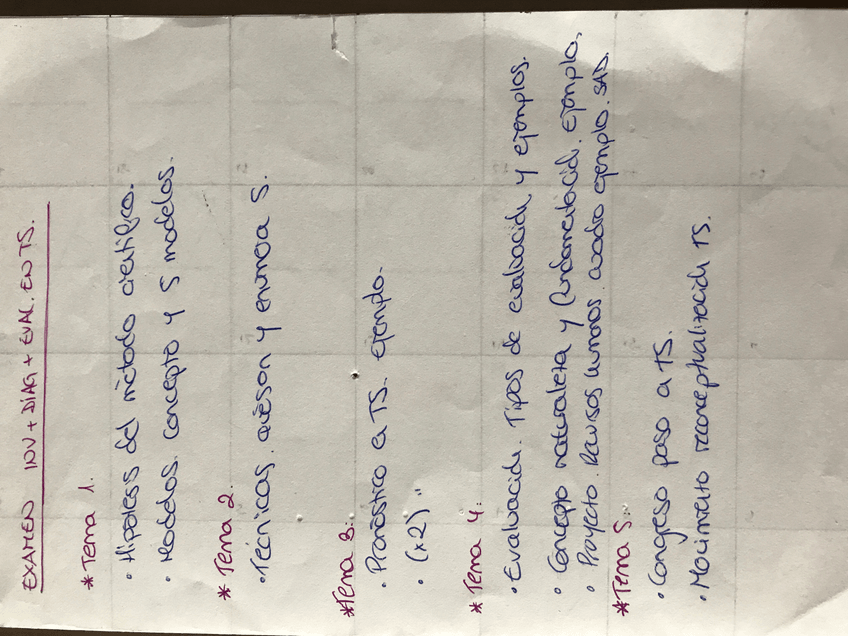 EXAMEN INV + DIAG + EVAL. EN TS.
* Tema 1.
• Hipótesis del método científico.
• Modelos. Concepto y 5 modelos.
* Tema 2.
• Técnicas. qué son y enumera 5.
* Tema 3:.
• Pronóstico a TS. ejemplo.
• (x2) "
* Tema 4:
• Evaluación. Tipos de evaluación y ejemplos.
• Concepto naturaleza y fundamentación. ejemplo.
• Proyecto. Recursos humanos. cuadro ejemplo. SAD.
* Tema 5:.
• Congreso paso a TS.
• Movimiento reconceptualización TS.